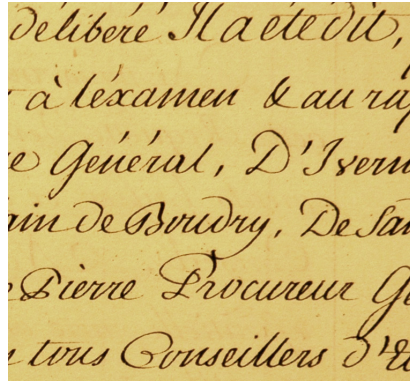 délibéré Il a été dit,
à léxamen & au rap
e Général, D'Ivern
ain de Boudry, De San
e Pierre Procureur Gé
s tous Conseillers d'E